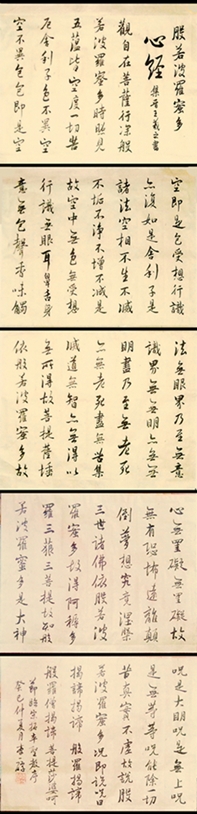 般若波羅蜜多
心經 集晉王羲之書
觀自在菩薩行深般
若波羅蜜多時照見
五蘊皆空度一切苦
厄舍利子色不異空
空不異色色即是空
空即是色受想行識
亦復如是舍利子是
諸法空相不生不滅
不垢不淨不增不減是
故空中無色無受想
行識無眼耳鼻舌身
意無色聲香味觸
法無眼界乃至無意
識界無無明亦無無
明盡乃至無老死
亦無老死盡無苦集
滅道無智亦無得以
無所得故菩提薩埵
依般若波羅蜜多故
心無罣礙無罣礙故
無有恐怖遠離顛
倒夢想究竟涅槃
三世諸佛依般若波
羅蜜多故得阿耨多
羅三藐三菩提故知般
若波羅蜜多是大神
咒是大明咒是無上咒
是無等等咒能除一切
苦真實不虛故說般
若波羅蜜多咒即說咒曰
揭諦揭諦 般羅揭諦
般羅僧揭諦菩提莎婆呵
節臨宋拓本聖教序
癸巳仲夏月李